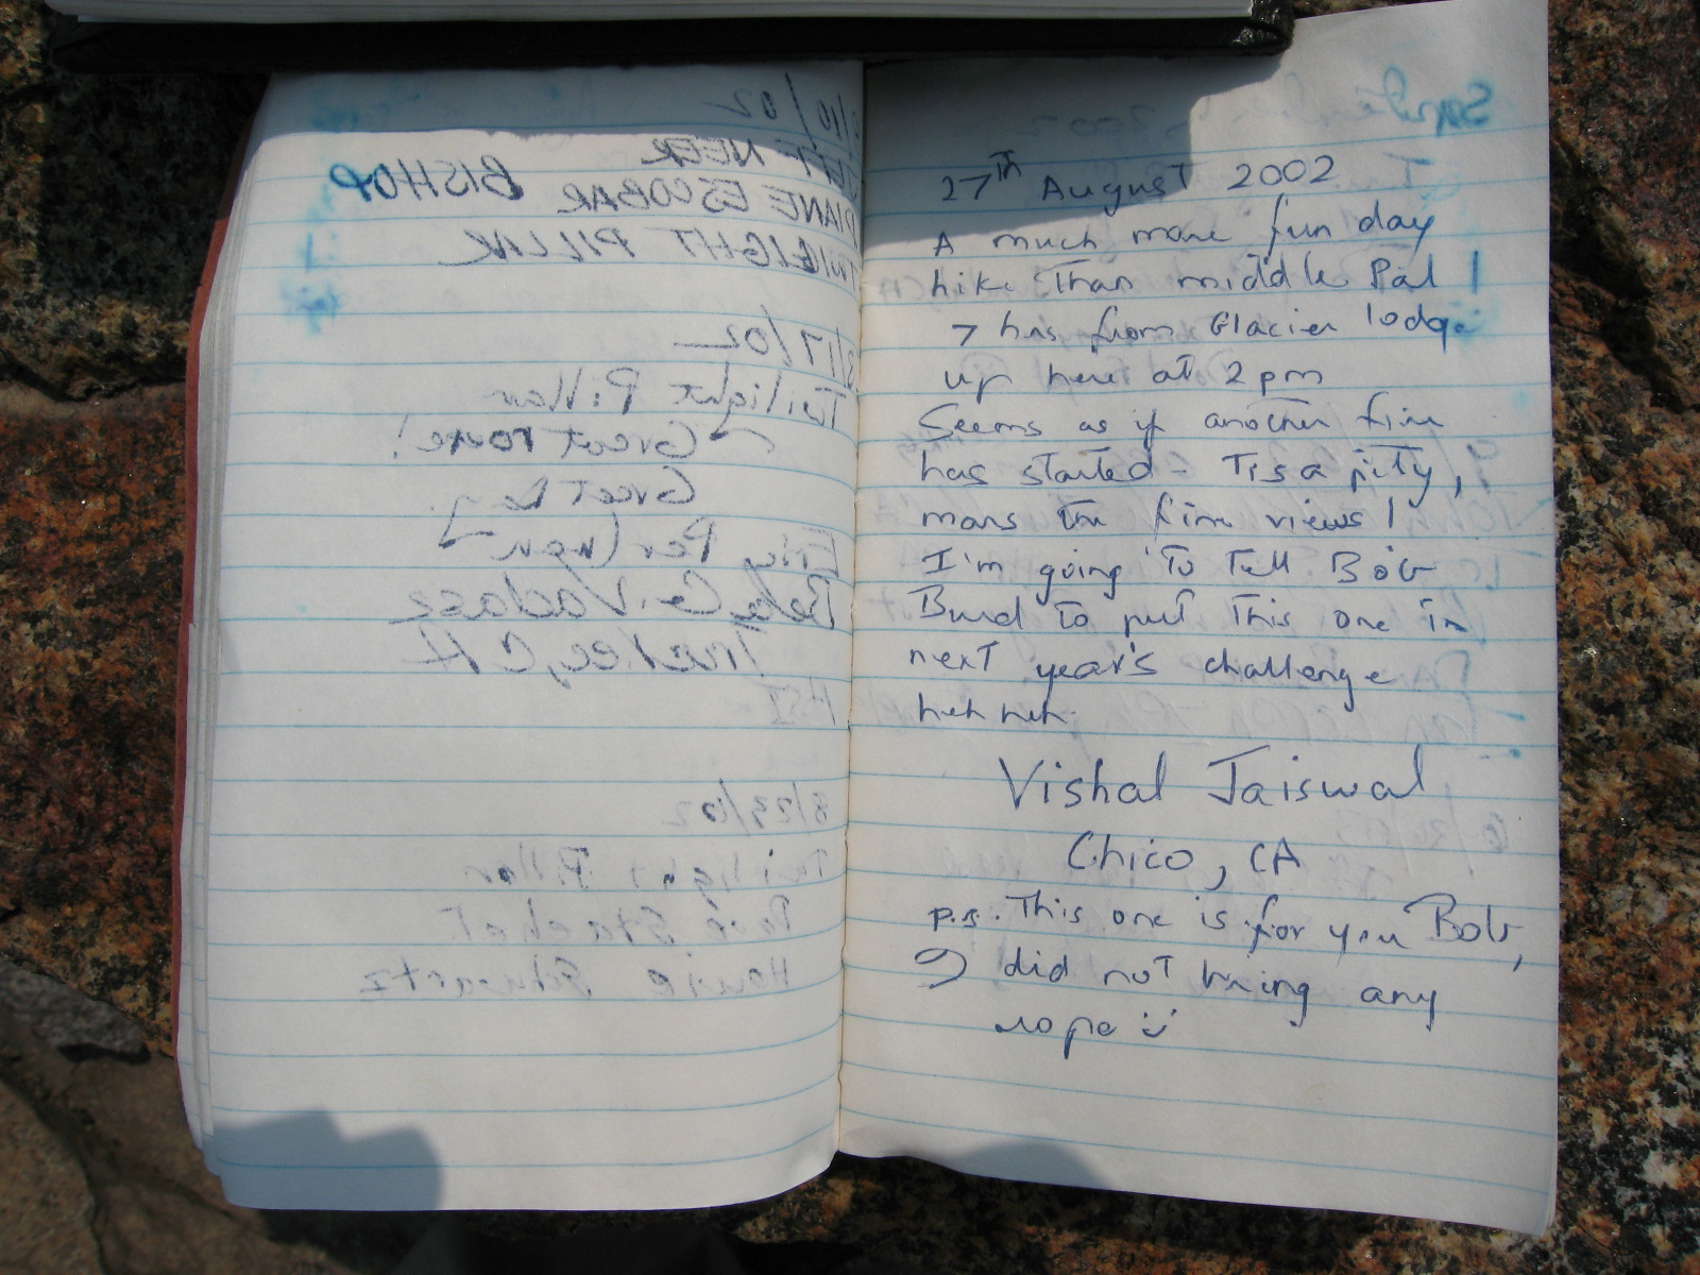 /10/02
JEFF NEER
DIANE ESCOBAR BISHOP
TWILIGHT PILLAR
8/17/02
Twilight Pillar
Great route!
Great
Truckee, CA
8/23/02
Twilight Pillar
Howie Schwartz
27th August 2002
A much more fun day
hike than middle Pal!
7 hrs from Glacier lodge
up here at 2pm
Seems as if another fire
has started - Tis a pity,
mars the fine views!
I'm going to tell Bob
Burd to put this one in
next year's challenge
heh heh.
Vishal Jaiswal
Chico, CA
p.s. This one is for you Bob,
I did not bring any
rope